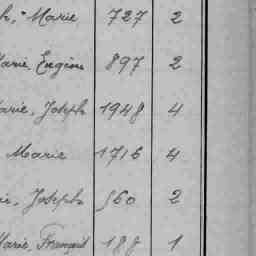 h, Marie 727 2
Marie, Eugène 897 2
Marie, Joseph 1948 4
Marie 1716 4
ie, Joseph 960 2
Marie, François 188 1